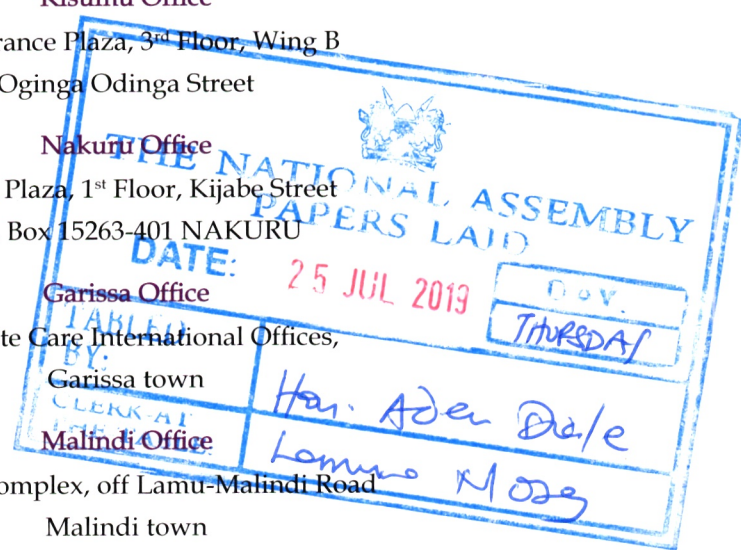 Kisumu Office
rance Plaza, 3rd Floor, Wing B
Oginga Odinga Street
Nakuru Office
Plaza, 1st Floor, Kijabe Street
Box 15263-401 NAKURU
Garissa Office
te Care International Offices,
Garissa town
Malindi Office
omplex, off Lamu-Malindi Road
Malindi town
THE NATIONAL ASSEMBLY
PAPERS LAID
DATE: 25 JUL 2019
DAY.
THURSDAY
TABLED
BY:
Hon. Aden Duale
CLERK-AT
THE TABLE: